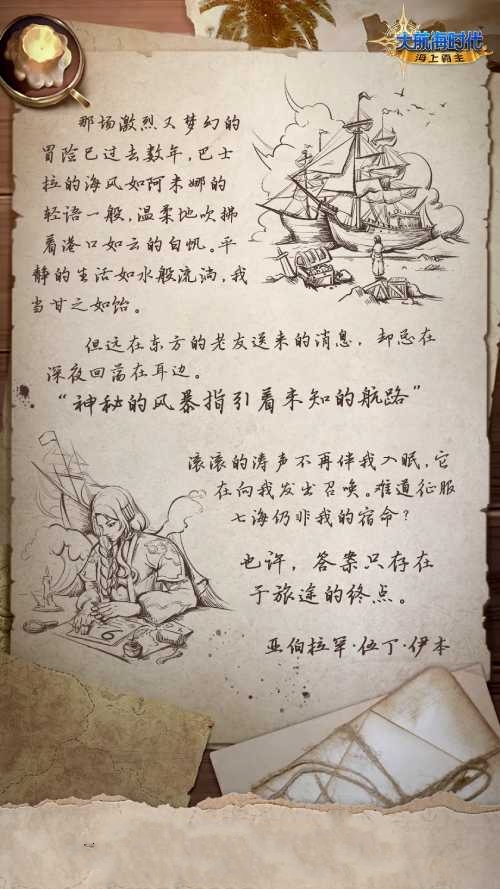 大航海时代
海上霸主
那场激烈又梦幻的
冒险已过去数年，巴士
拉的海风如阿米娜的
轻语一般，温柔地吹拂
着港口如云的白帆。平
静的生活如水般流淌，我
当甘之如饴。
但远在东方的老友送来的消息，却总在
深夜回荡在耳边。
“神秘的风暴指引着未知的航路”
滚滚的涛声不再伴我入眠，它
在向我发出召唤。难道征服
七海仍非我的宿命？
也许，答案只存在
于旅途的终点。
亚伯拉罕·伍丁·伊本